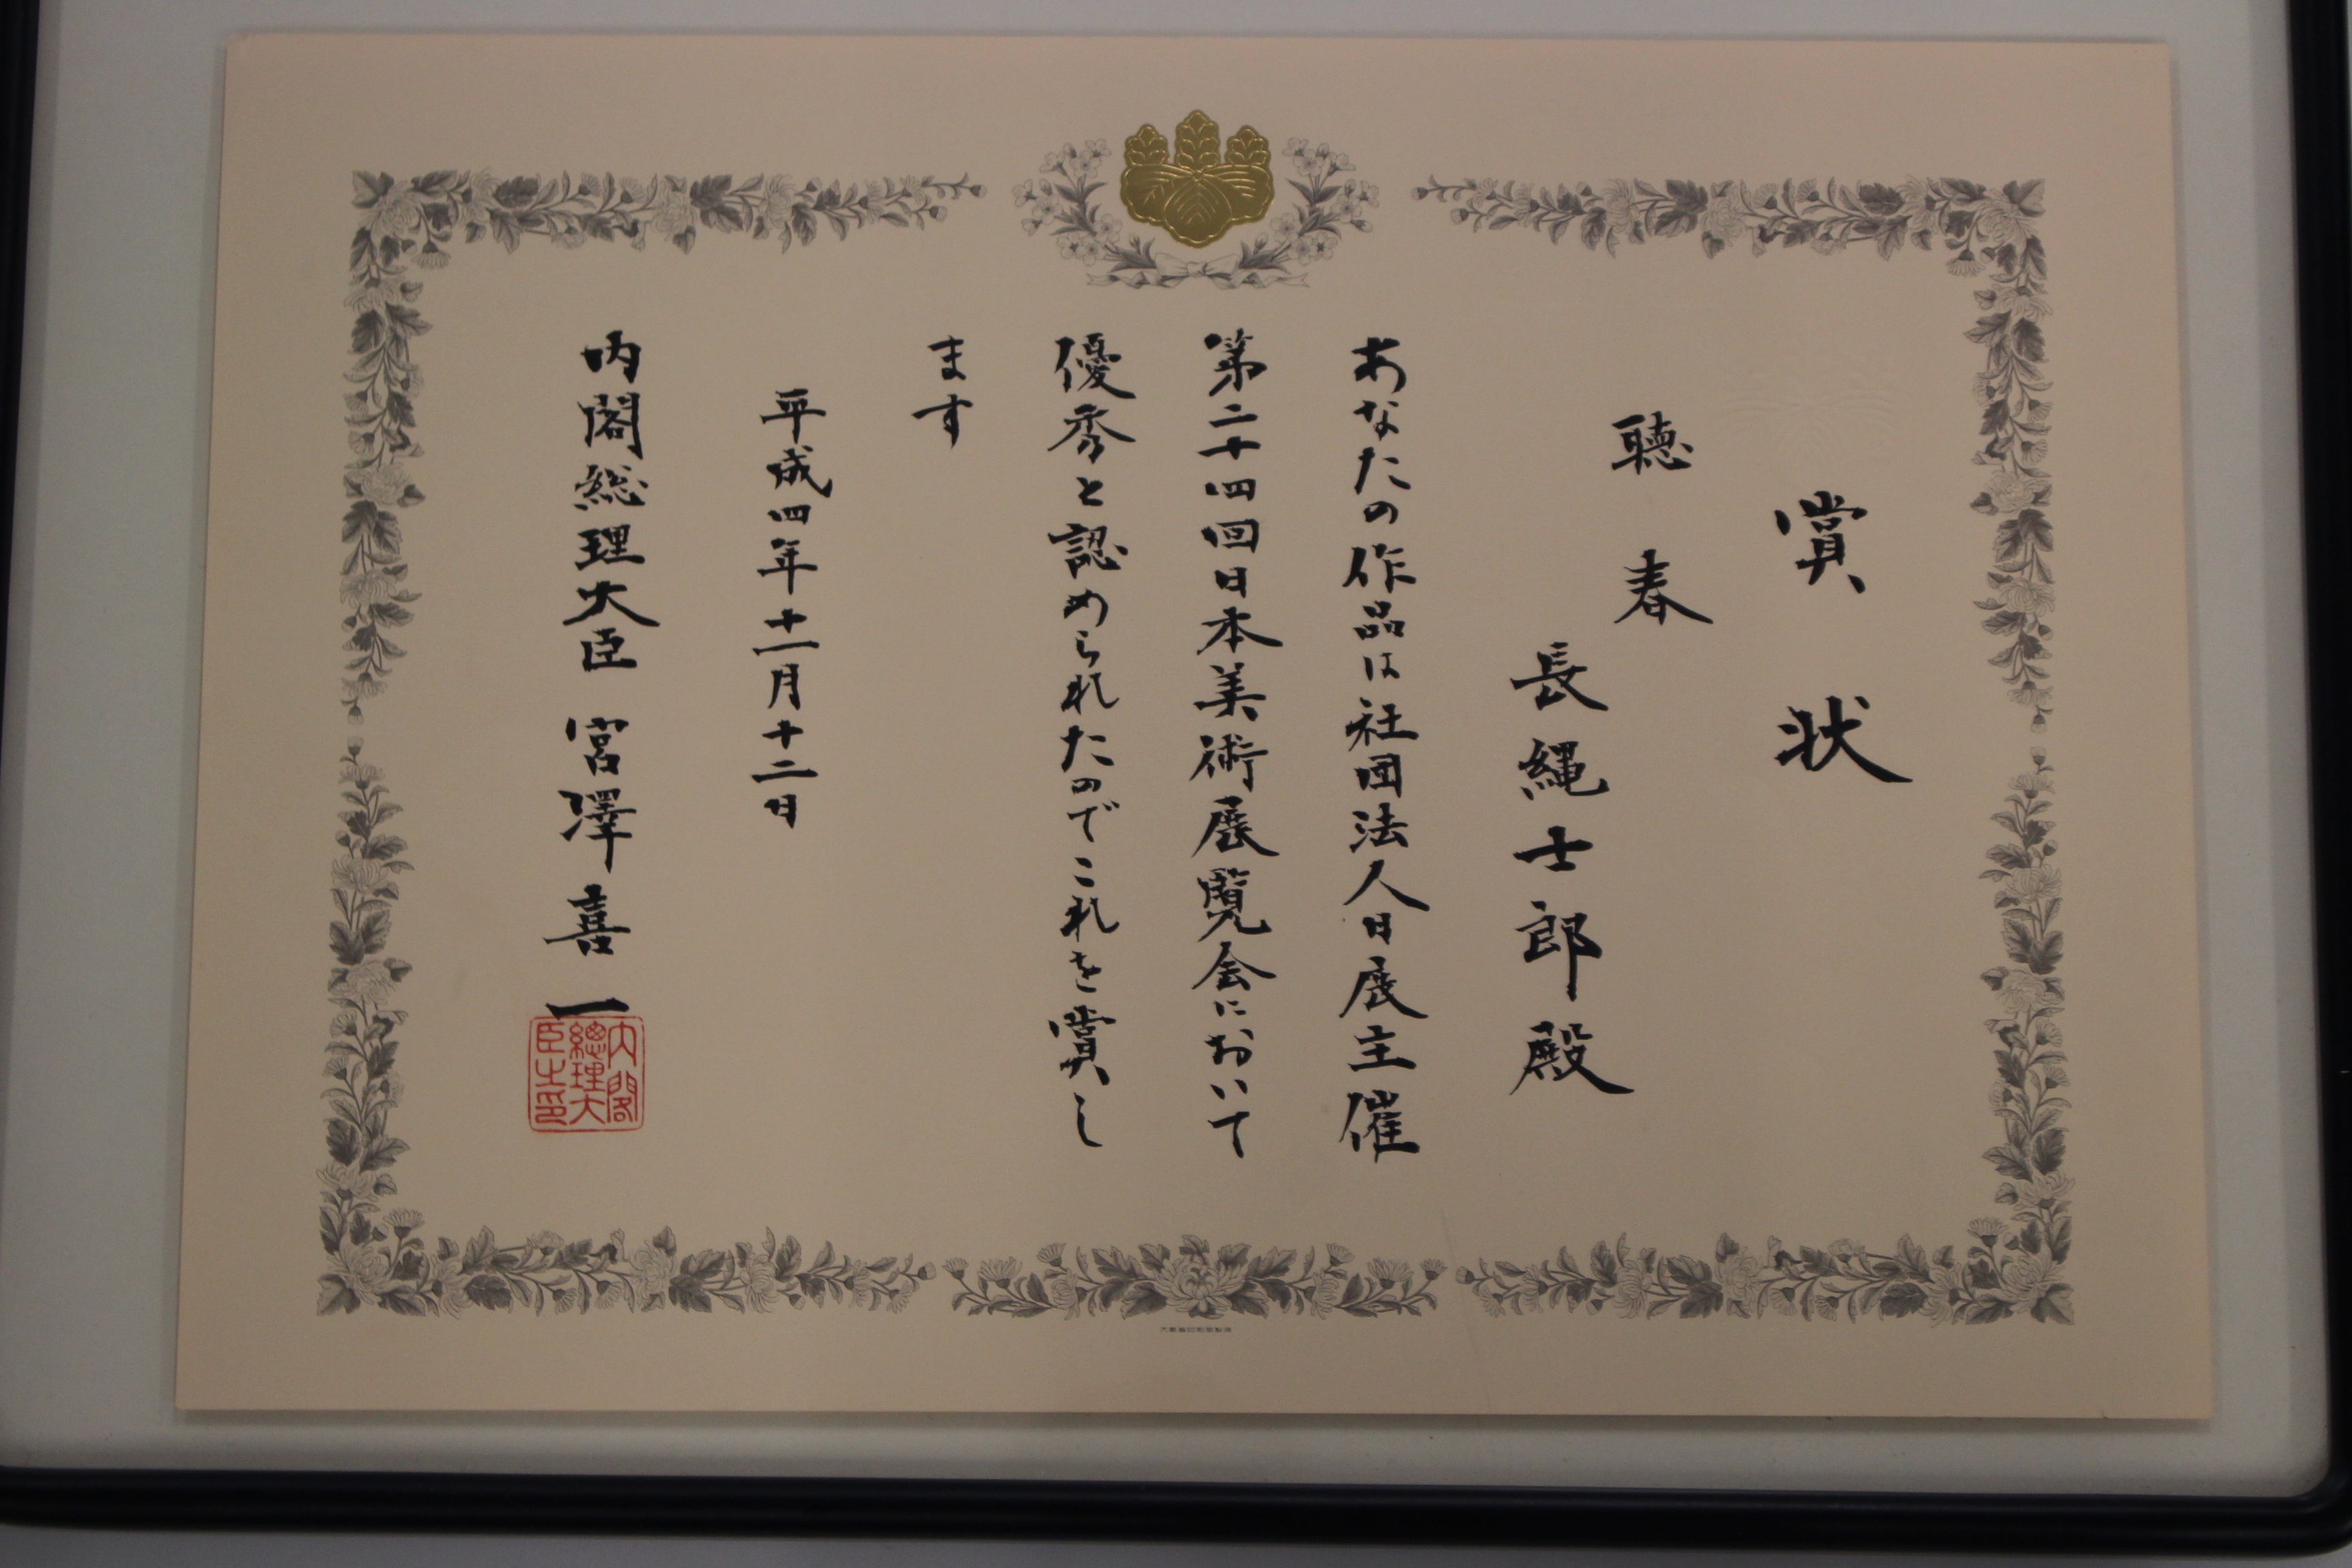 賞状
聴春
長縄士郎殿
あなたの作品は社団法人日展主催
第二十四回日本美術展覧会において
優秀と認められたのでこれを賞し
ます
平成四年十一月十二日
内閣総理大臣 宮澤喜一
内閣
總理大
臣之印